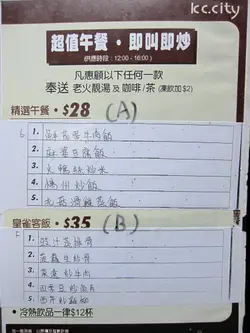 kc.city
超值午餐・即叫即炒
(供應時段：12:00 - 16:00)
凡惠顧以下任何一款
奉送 老火靚湯 及 咖啡/茶 (凍飲加$2)
精選午餐・$28 (A)
1. 牛肉飯
2. 麻婆豆腐飯
3. 火鴨絲炒米
4. 楊州炒飯
5. 北菇滑雞煲飯
皇雀客飯・$35 (B)
1. 豉汁蒸排骨
2. 生炒骨
3. 菜遠炒牛肉
4. 四季豆炒魚片
5. 西芹炒雞柳
・冷熱飲品一律$12杯